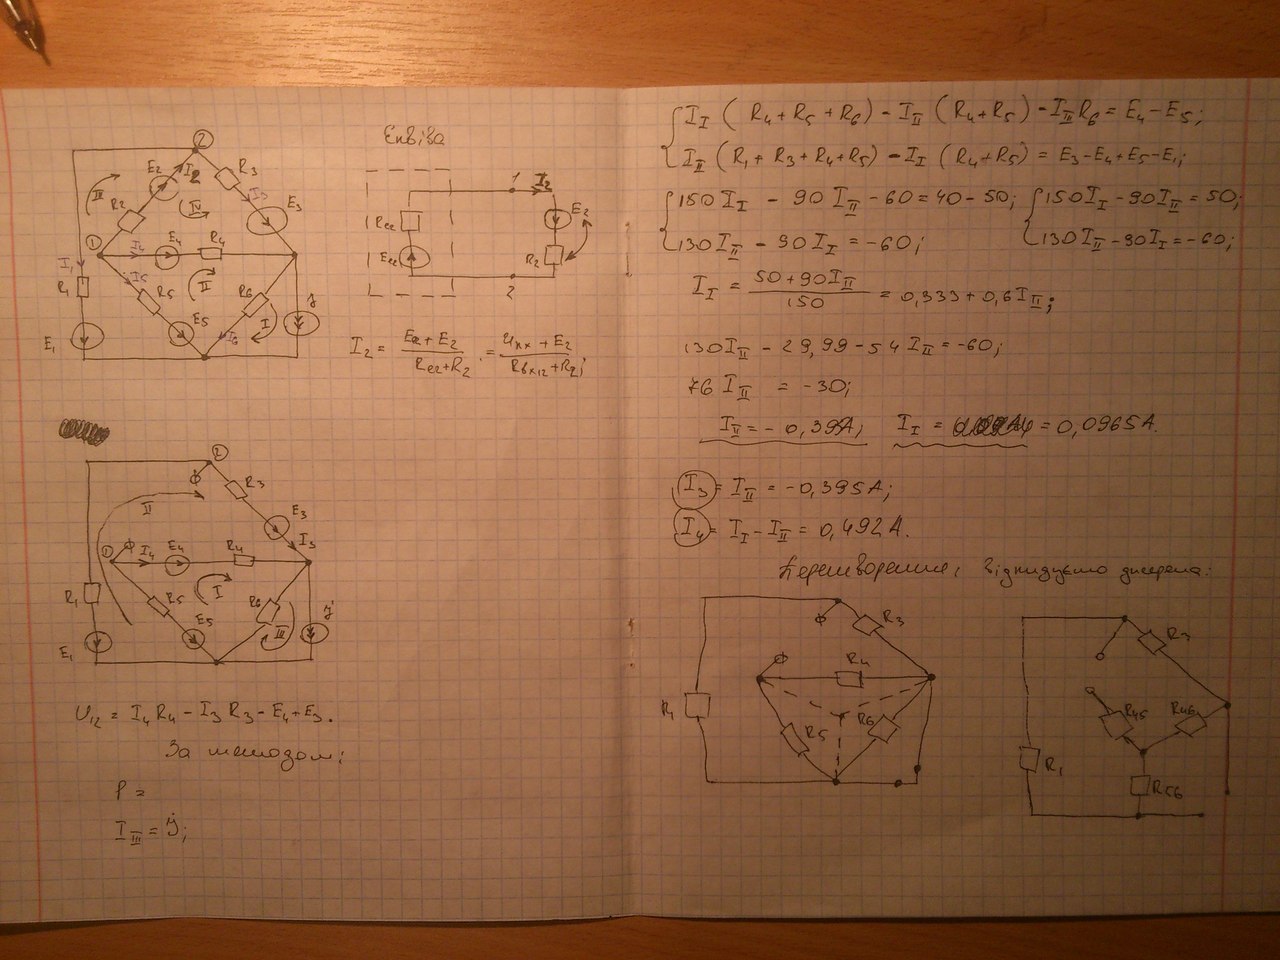 ②
E₂
I₂
R₃
I₃
E₃
III
IV
R₂
①
I₄
E₄
R₄
I₁
I₅
II
R₁
R₅
R₆
J
E₅
I
E₁
I₆
Еквіва
1
I₂
Rег
E₂
Eег
R₂
2
I₂ = (Eег + E₂)/(Rег + R₂) = (Uхх + E₂)/(Rвх12 + R₂);
②
R₃
II
E₃
①
I₄
E₄
R₄
I₃
I
R₁
R₅
R₆
E₅
III
J
E₁
U₁₂ = I₄R₄ - I₃R₃ - E₄ + E₃.
За методом:
P =
I_III = J;
I_I (R₄ + R₅ + R₆) - I_II (R₄ + R₅) - I_III R₆ = E₄ - E₅;
I_II (R₁ + R₃ + R₄ + R₅) - I_I (R₄ + R₅) = E₃ - E₄ + E₅ - E₁;
150 I_I - 90 I_II - 60 = 40 - 50; 150 I_I - 90 I_II = 50;
130 I_II - 90 I_I = -60; 130 I_II - 90 I_I = -60;
I_I = (50 + 90 I_II)/150 = 0,333 + 0,6 I_II;
130 I_II - 29,99 - 54 I_II = -60;
76 I_II = -30;
I_II = -0,39A; I_I = = 0,0965A.
I₃ = I_II = -0,395A;
I₄ = I_I - I_II = 0,492A.
Перетворення, відкидуємо джерела:
R₃
R₄
R₁
R₅
R₆
R₃
R₄₅
R₄₆
R₁
R₅₆